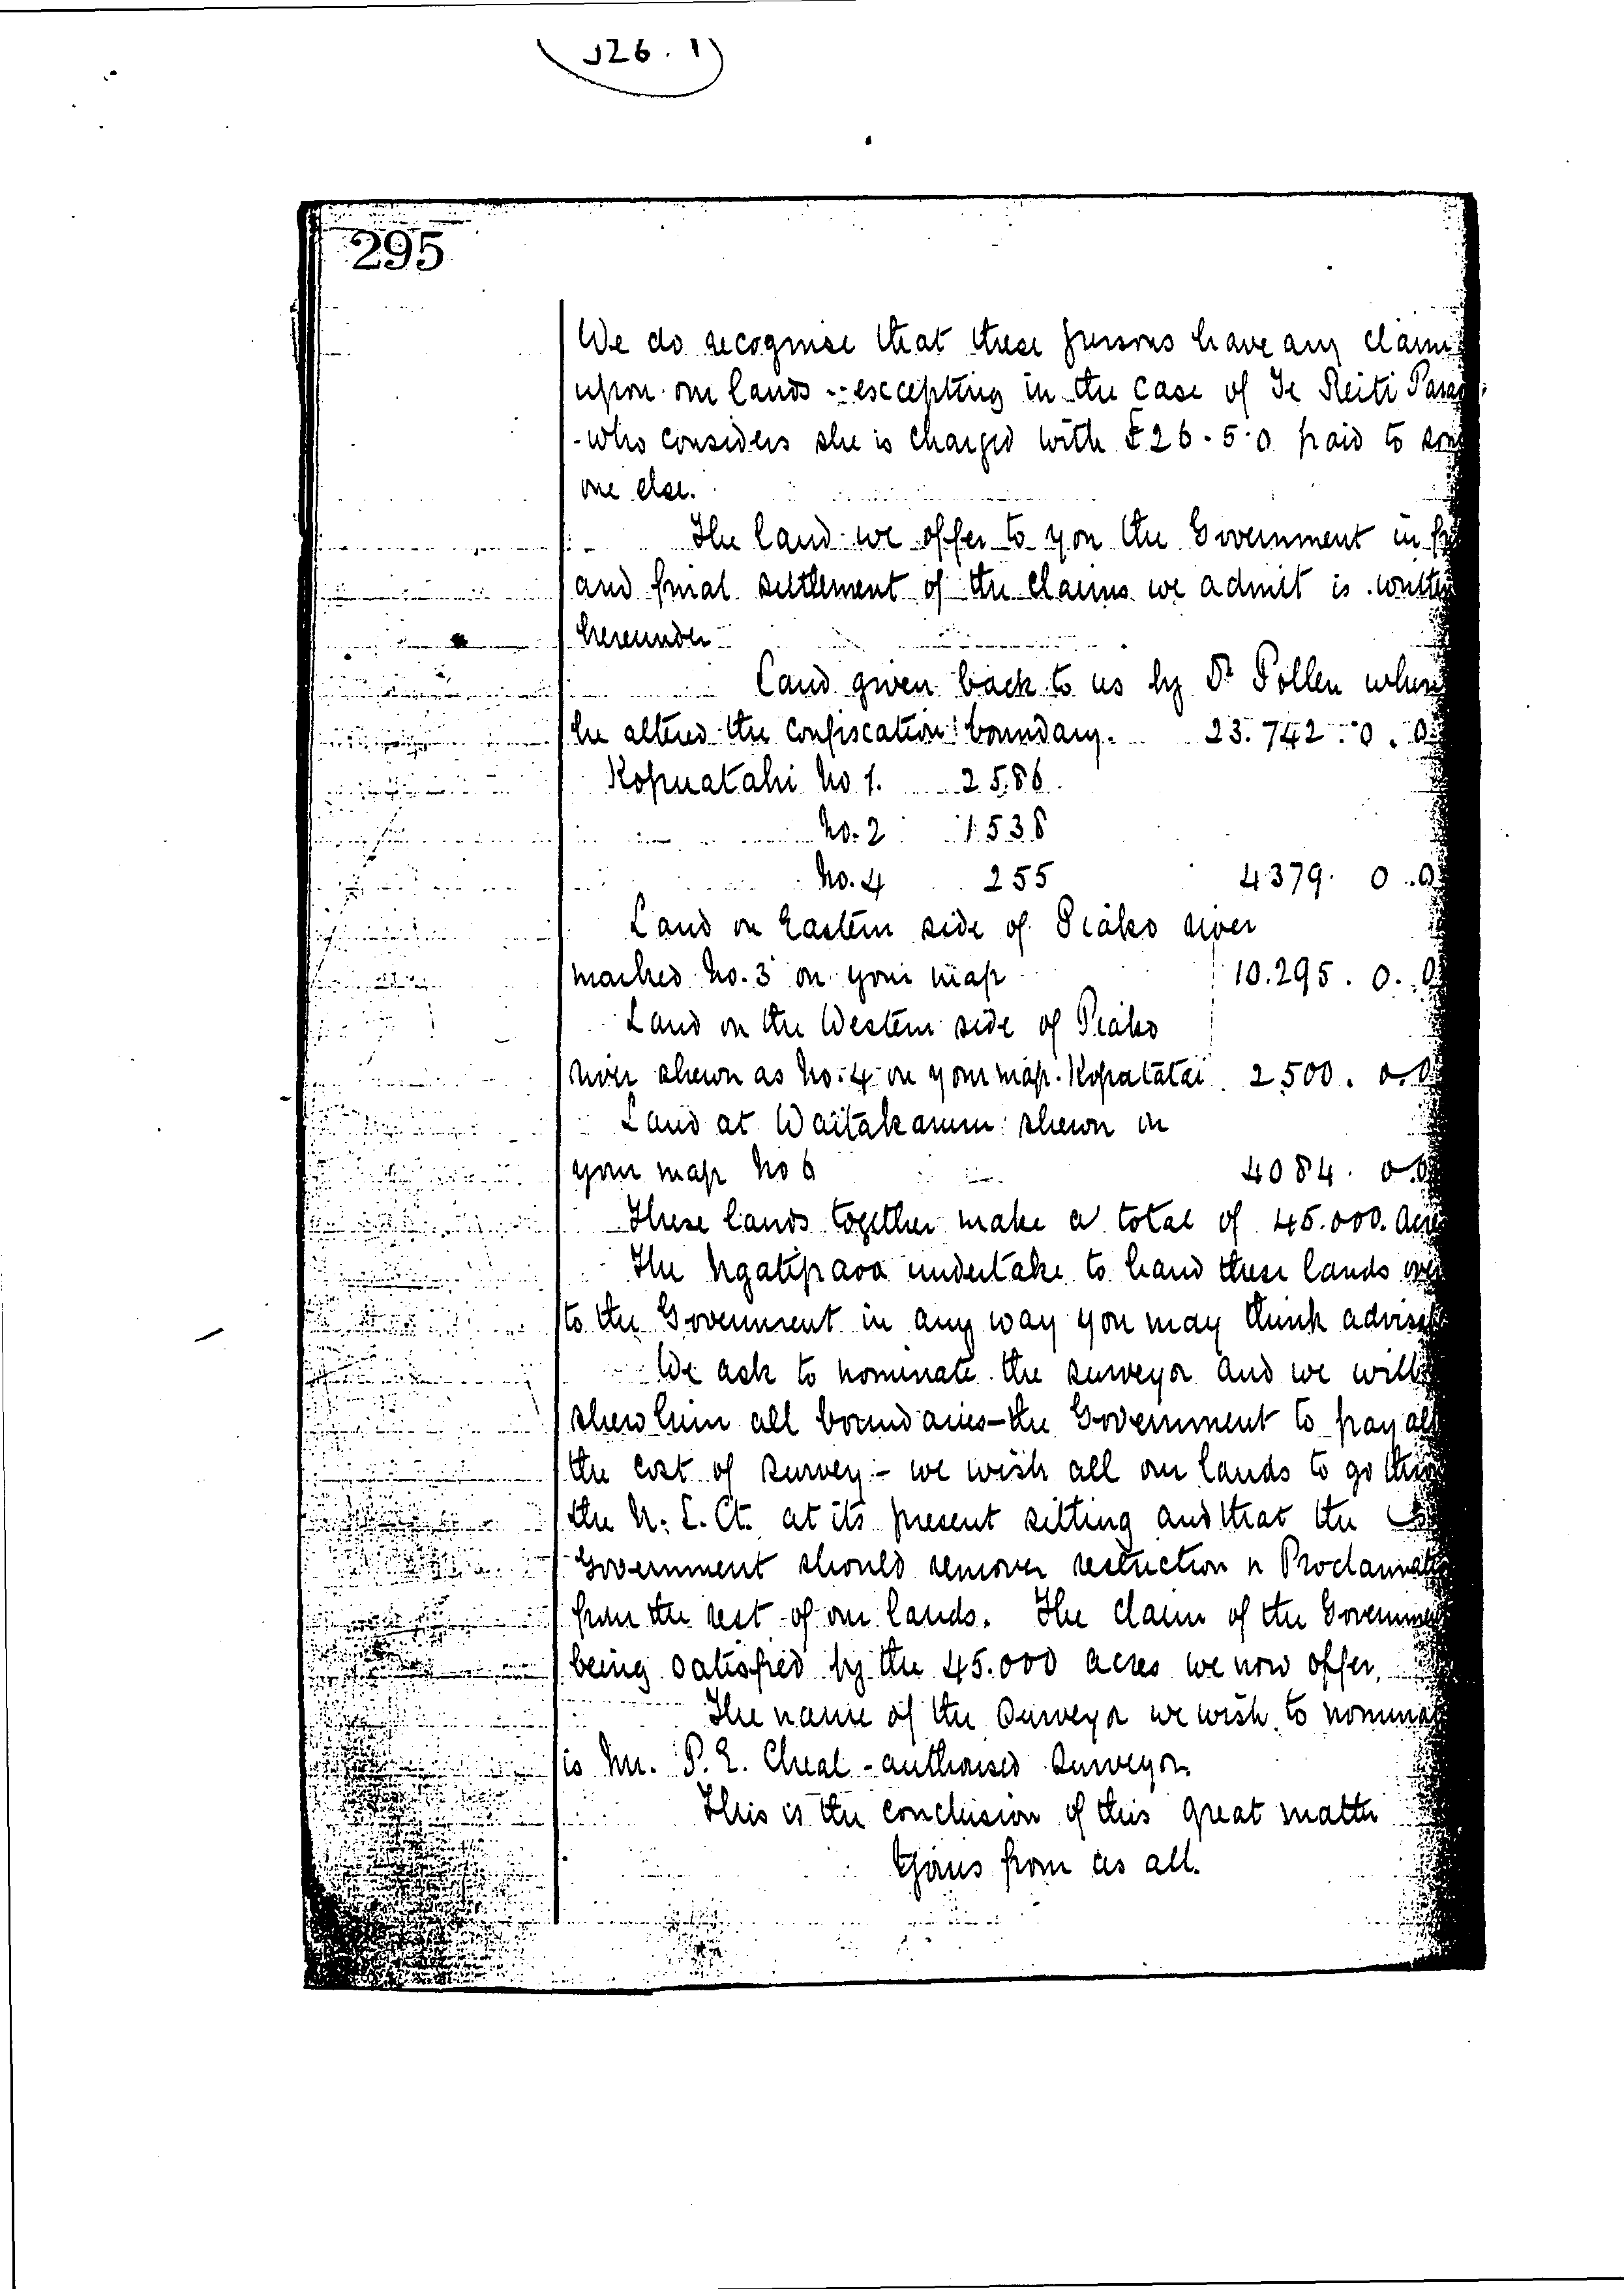 J26.1
295
We do recognise that these persons have any claim
upon our lands - excepting in the case of Te Reiti Para
- who considers she is charged with £26-5-0 paid to som
one else.
The land we offer to you the Government in fu
and final settlement of the claims we admit is written
hereunder
Land given back to us by Dr Pollen when
he altered the confiscation boundary. 23.742.0.0
Kopuatahi No 1. 2586
No. 2 1538
No. 4 255 4379. 0.0
Land on Eastern side of Piako river
marked No. 3 on your map 10.295. 0. 0
Land on the Western side of Piako
river shewn as No. 4 on your map. Kopatatai 2500. 0.0
Land at Waitakaruru shewn in
your map No 6 4084. 0.0
These lands together make a total of 45.000. acre
The Ngatipaoa undertake to hand these lands over
to the Government in any way you may think advisa
We ask to nominate the surveyor and we will
shew him all boundaries - the Government to pay all
the cost of survey - we wish all our lands to go thro
the N. L. Ct. at its present sitting and that the
Government should remove restriction or Proclamatio
from the rest of our lands. The claim of the Governmen
being satisfied by the 45.000 acres we now offer,
The name of the Surveyor we wish to nominat
is Mr. P. E. Cheal - authorised Surveyor.
This is the conclusion of this great matter
Yours from us all.